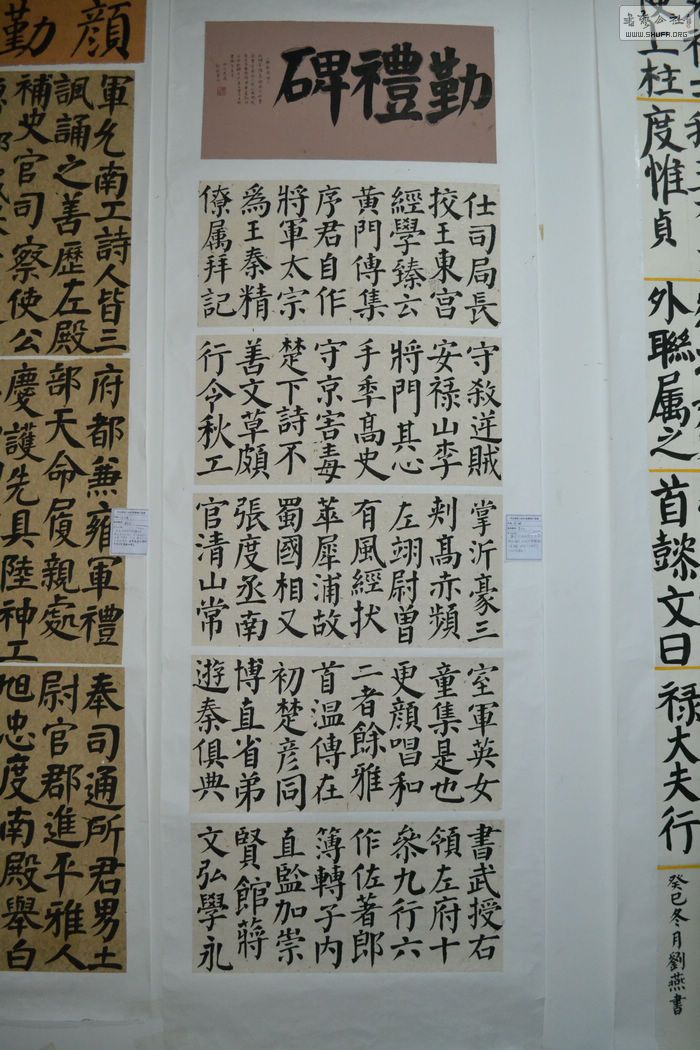 書法公社
WWW.SHUFA.ORG
使上柱
度惟貞
外聯属之
首懿文曰
禄大夫行
癸巳冬月劉燕書
勤禮碑
仕司局長
挍王東宮
經學臻云
黄門傳集
序君自作
將軍太宗
爲王秦精
僚属拜記
守殺逆賊
安禄山李
將門其心
手季髙史
守京害毒
楚下詩不
善文草頗
行令秋工
掌沂豪三
刾髙亦頻
左翊尉曾
有風經扶
華犀浦故
蜀國相又
張度丞南
官清山常
室軍英女
童集是也
更顔唱和
二者餘雅
首温傳在
初楚彦同
博直省弟
遊秦俱典
書武授右
領左府十
叅九行六
作佐著郎
簿轉子内
直監加崇
賢館蔣
文弘學永
顔勤
軍允南工詩人皆三
諷誦之善歷左殿
補史官司察使公
府都兼雍軍禮
部天命履親處
慶護先具陸神工
奉司通所君男土
尉官郡進平雅人
旭忠度南殿舉白